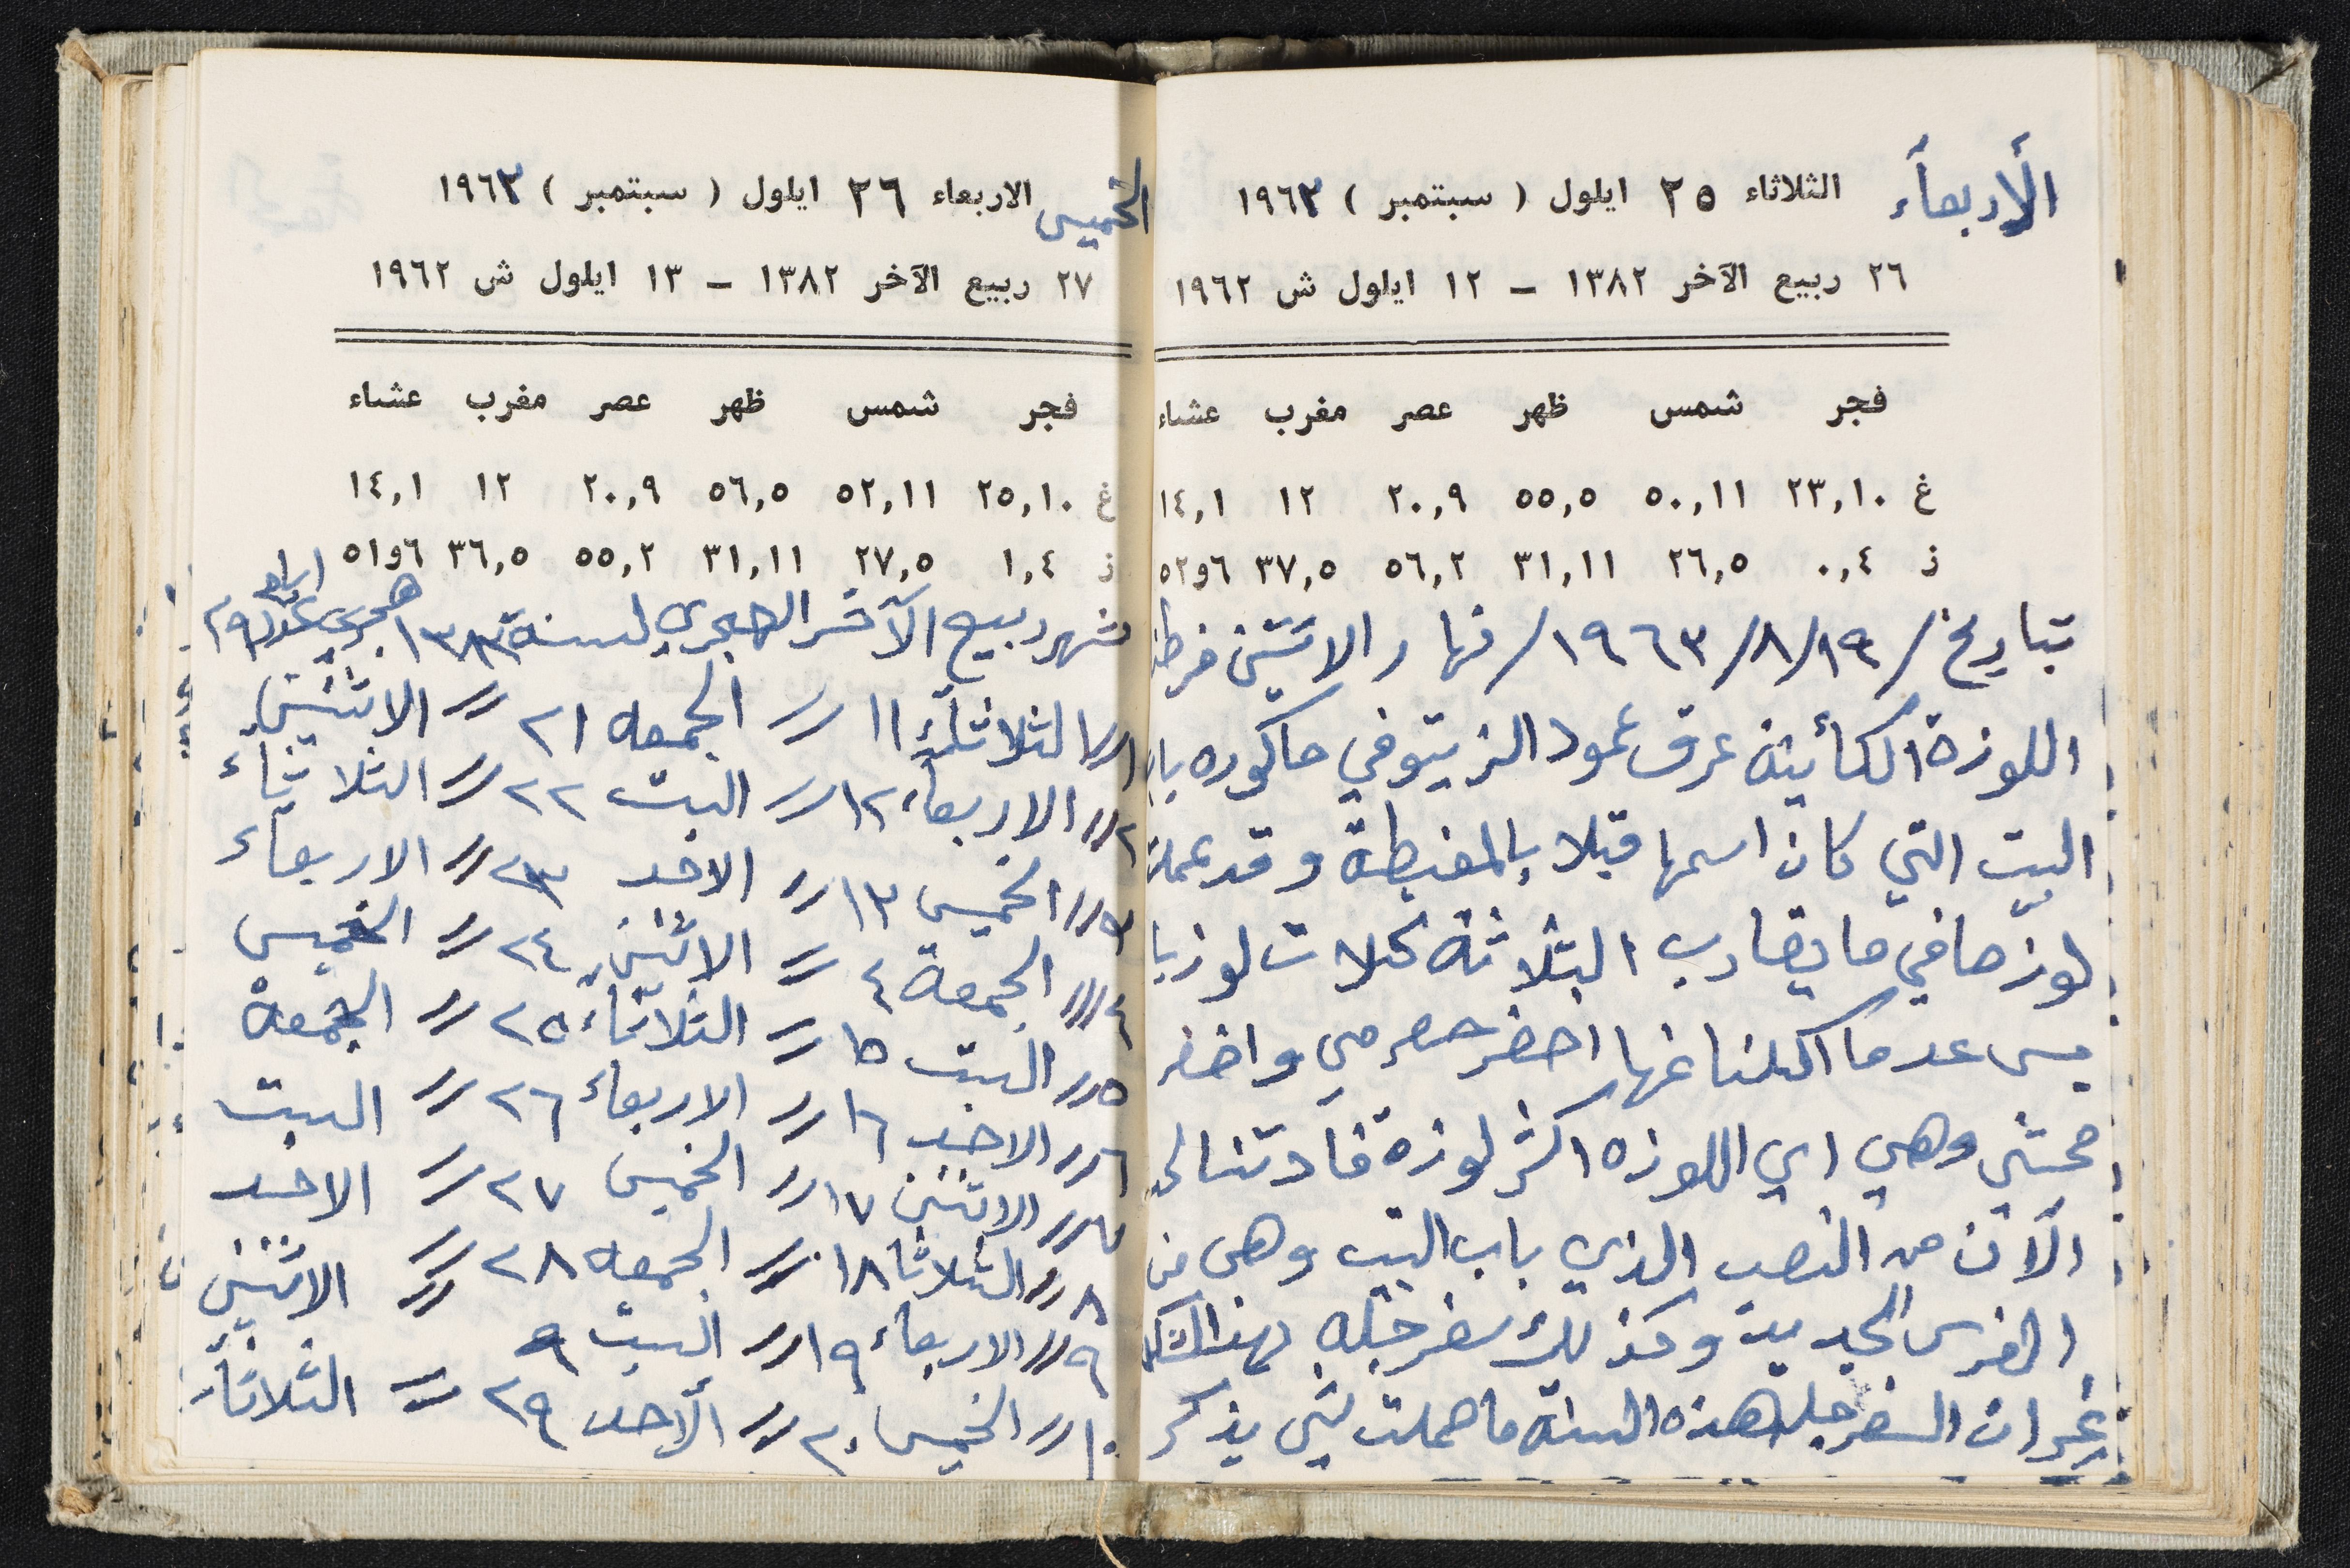 الأربعاء الثلاثاء ٢٥ ايلول ( سبتمبر ) ١٩٦٣
٢٦ ربيع الآخر ١٣٨٢ – ١٢ ايلول ش ١٩٦٢
فجر شمس ظهر عصر مغرب عشاء
غ ٢٣,١٠ ٥٠,١١ ٥٥,٥ ٢٠,٩ ١٢ ١٤,١
ز ٠,٤ ٢٦,٥ ٣١,١١ ٥٦,٢ ٣٧,٥ ٦و٥٢
بتاريخ /١٩/٨/١٩٦٣/ نهار الاثنين فرطنا
اللوزة الكأينة عرق عمود الزيتو في حاكوره باب
البيت التي كان اسمها قبلا بالمغيطة وقد عملت
لوزها في ما يقارب الثلاثة كلات لوز يا
بس عدما اكلنا منها اخضر حصرمي واخضر
محشي وهي اي اللوزه اكثر لوزة فادتنا لحد
الآن من النصب الذي باب البيت وهي من
الغرس الجديد وكذلك سفرجله بهذا الشكل
غير ان السفرجله هذه السنة ما حملت شي يذكر
الخميس الاربعاء ٢٦ ايلول ( سبتمبر ) ١٩٦٣
٢٧ ربيع الآخر ١٣٨٢ – ١٣ ايلول ش ١٩٦٢
فجر شمس ظهر عصر مغرب عشاء
غ ٢٥,١٠ ٥٢,١١ ٥٦,٥ ٢٠,٩ ١٢ ١٤,١
ز ١,٤ ٢٧,٥ ٣١,١١ ٥٥,٢ ٣٦,٥ ٦و٥١
شهر ربيع الآخر الهجري لسنة ١٣٨٣ هجري عدد ايام ٢٩
١ // الثلاثاء ١١ // الجمعه ٢١ // الاثنين
٢ // الاربعاء ١٢ // السبت ٢٢ // الثلاثاء
٣ // الخميس ١٣ // الاحد ٢٣ // الاربعاء
٤ // الجمعة ٤ // الاثنين ٢٤ // الخميس
٥ // السبت ١٥ // الثلاثاء ٢٥ // الجمعة
٦ // الاحد ١٦ // الاربعاء ٢٦ // السبت
٧ // الاثنين ١٧ // الخميس ٢٧ // الاحد
٨ // الثلاثا ١٨ // الجمعه ٢٨ // الاثنين
٩ // الاربعاء ١٩ // السبت ٩ // الثلاثاء
١٠ // الخميس ٢٠ // الأحد ٢٩ //